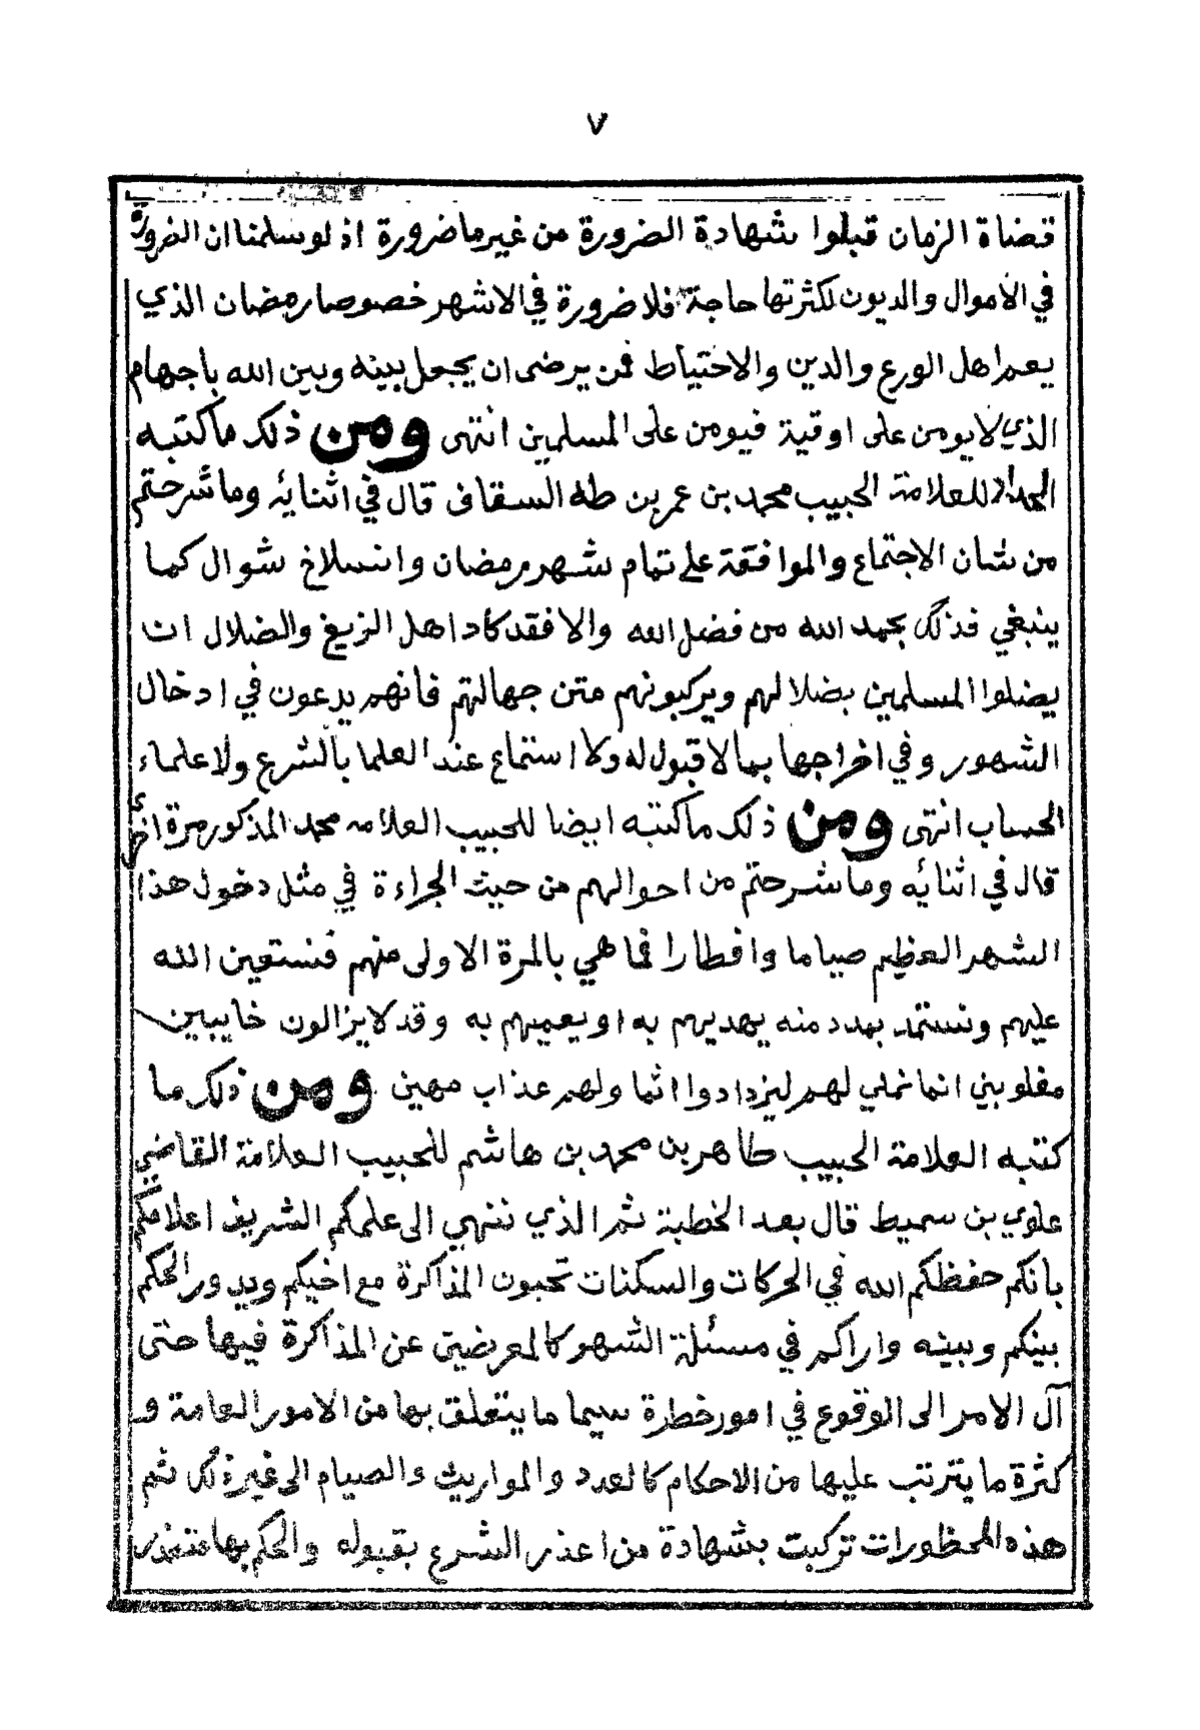 ٧
قضاة الزمان قبلوا شهادة الضرورة من غير ما ضرورة اذ لو سلمنا ان الضرورة
في الأموال والديون لكثرتها حاجة فلا ضرورة في الاشهر خصوصا رمضان الذي
يعم اهل الورع والدين والاحتياط فمن يرضى ان يجعل بينه وبين الله باجهام
الذي لا يومن على اوقية فيومن على المسلمين انتهى ومن ذلك ما كتبه
الحداد للعلامة الحبيب محمد بن عمر بن طه السقاف قال في اثنائه وما شرحتم
من شان الاجتماع والموافقة على تمام شهر رمضان وانسلاخ شوال كما
ينبغي فذلك بحمد الله من فضل الله والا فقد كاد اهل الزيغ والضلال ان
يضلوا المسلمين بضلالهم ويركبونهم متن جهالتهم فانهم يدعون في ادخال
الشهور وفي اخراجها بما لا قبول له ولا استماع عند العلما بالشرع ولا علماء
الحساب انتهى ومن ذلك ما كتبه ايضا للحبيب العلامه محمد المذكور مرة أخرى
قال في اثنائه وما شرحتم من احوالهم من حيث الجراءة في مثل دخول هذا
الشهر العظيم صياما وافطارا فما هي بالمرة الاولى منهم فنستعين الله
عليهم ونستمد بمدد منه يهديهم به او يعميهم به وقد لا يزالون خايبين
مغلوبين انما نملي لهم ليزدادوا اثما ولهم عذاب مهين ومن ذلك ما
كتبه العلامة الحبيب طاهر بن محمد بن هاشم للحبيب العلامة القاضي
علوي بن سميط قال بعد الخطبة ثم الذي ننهي الى علمكم الشريف اعلامكم
بانكم حفظكم الله في الحركات والسكنات تحبون المذاكرة مع اخيكم ويدور الحكم
بينكم وبينه واراكم في مسئلة الشهو كالمعرضين عن المذاكرة فيها حتى
آل الامر الى الوقوع في امور خطرة سيما ما يتعلق بها من الامور العامة و
كثرة ما يترتب عليها من الاحكام كالعدد والمواريث والصيام الى غير ذلك ثم
هذه المحظورات تركبت بشهادة من اعذر الشرع بقبوله والحكم بها متعذر